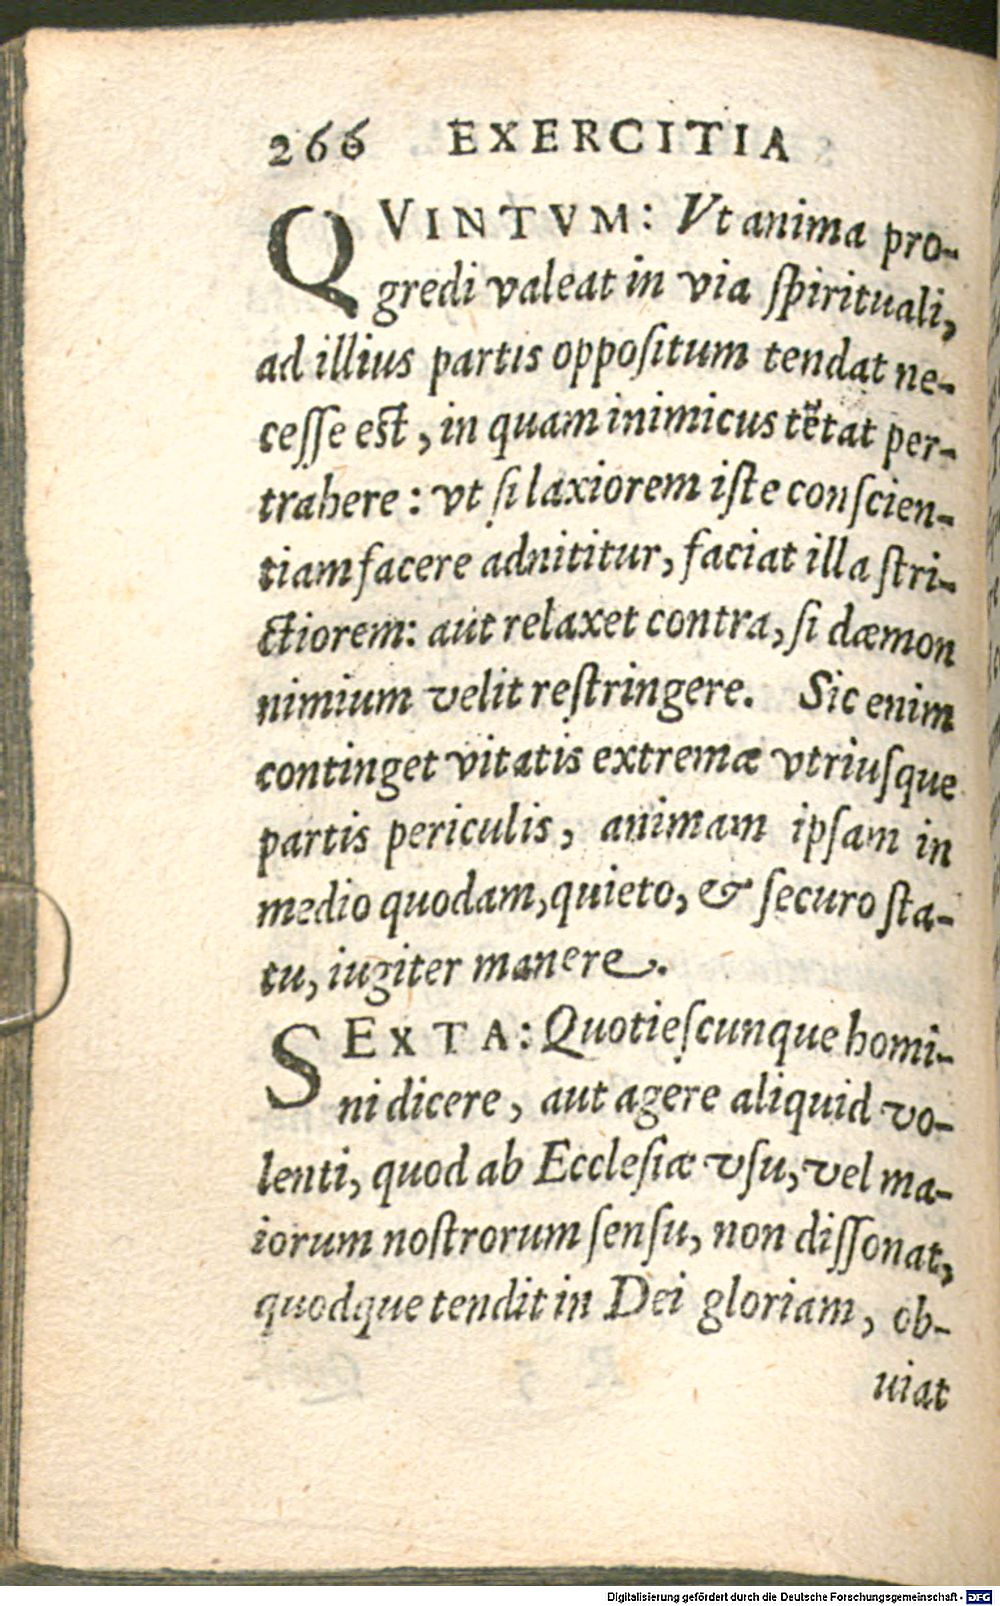 266 EXERCITIA
QVINTVM: Vt anima pro-
gredi valeat in via ſpirituali,
ad illius partis oppoſitum tendat ne-
ceſſe eſt, in quam inimicus tẽtat per-
trahere: vt ſi laxiorem iſte conſcien-
tiam facere adnititur, faciat illa ſtri-
ctiorem: aut relaxet contra, ſi dæmon
nimium velit reſtringere. Sic enim
continget vitatis extremæ vtriuſque
partis periculis, animam ipſam in
medio quodam, quieto, & ſecuro ſta-
tu, iugiter manere.
SEXTA: Quotieſcunque homi-
ni dicere, aut agere aliquid vo-
lenti, quod ab Eccleſiæ vſu, vel ma-
iorum noſtrorum ſenſu, non diſſonat,
quodque tendit in Dei gloriam, ob-
uiat
Digitalisierung gefördert durch die Deutsche Forschungsgemeinschaft - DFG